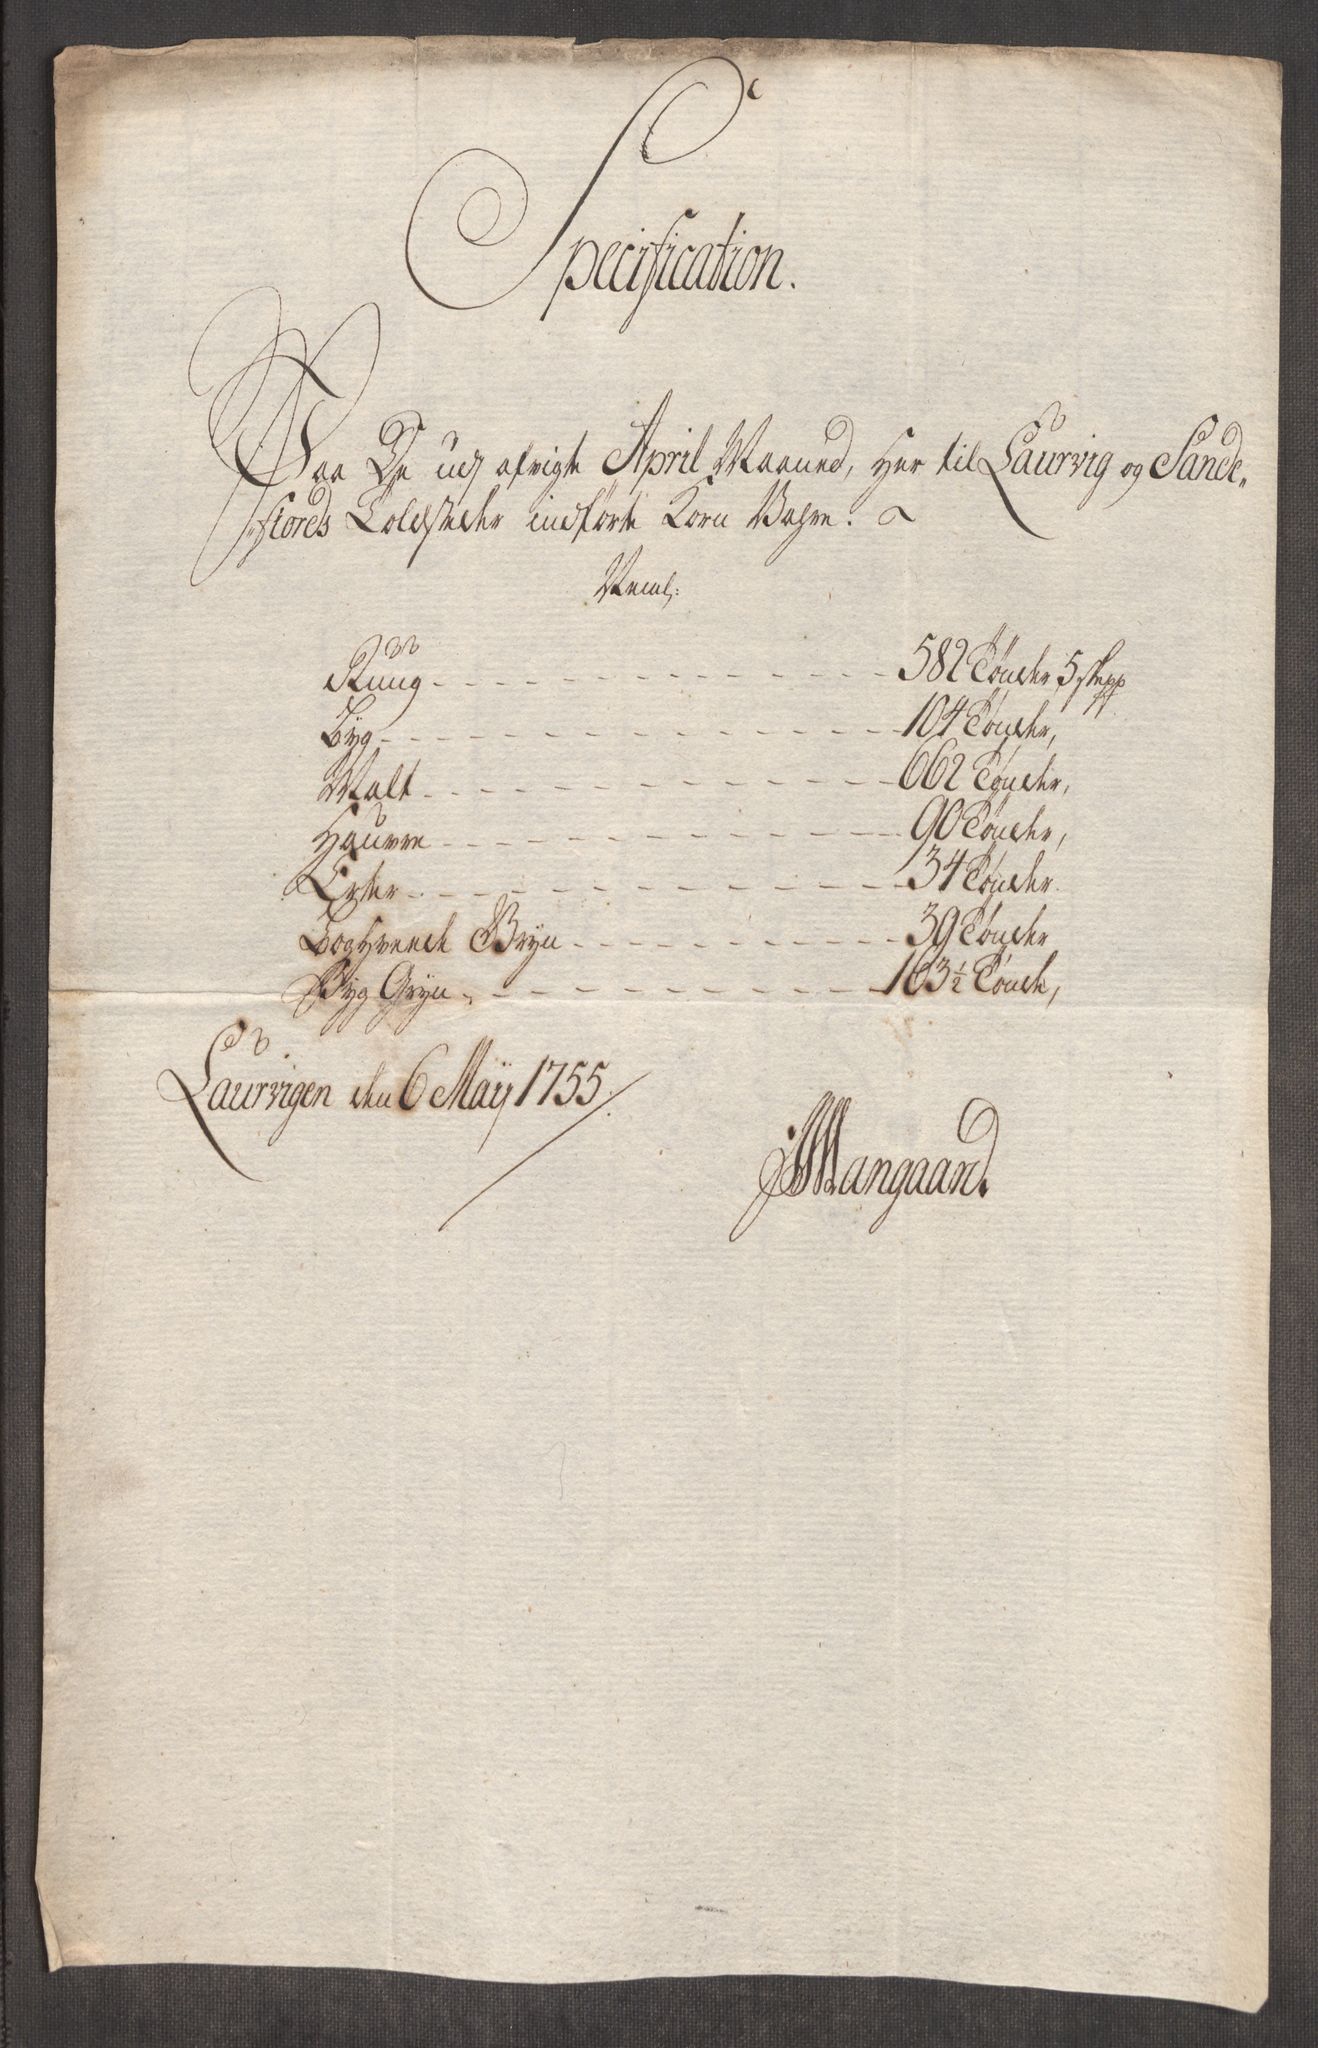 Specification.
Paa De udj afvigte April Maaned, her til Laurvig og Sande„
„fiords Toldsteder indförte Korn Vahre.
Neml:
Rüug - - - 582 Tönder 5 skepp
Byg - - - 104 Tönder,
Malt - - - 662 Tönder,
Hauvre - - - 90 Tönder,
Erter - - - 34 Tönder.
Boghvede Gryn - - - 39 Tönder
Byg Gryn - - - 163½ Tönde,
Laurvigen den 6 Maÿ 1755.
Mangaard.